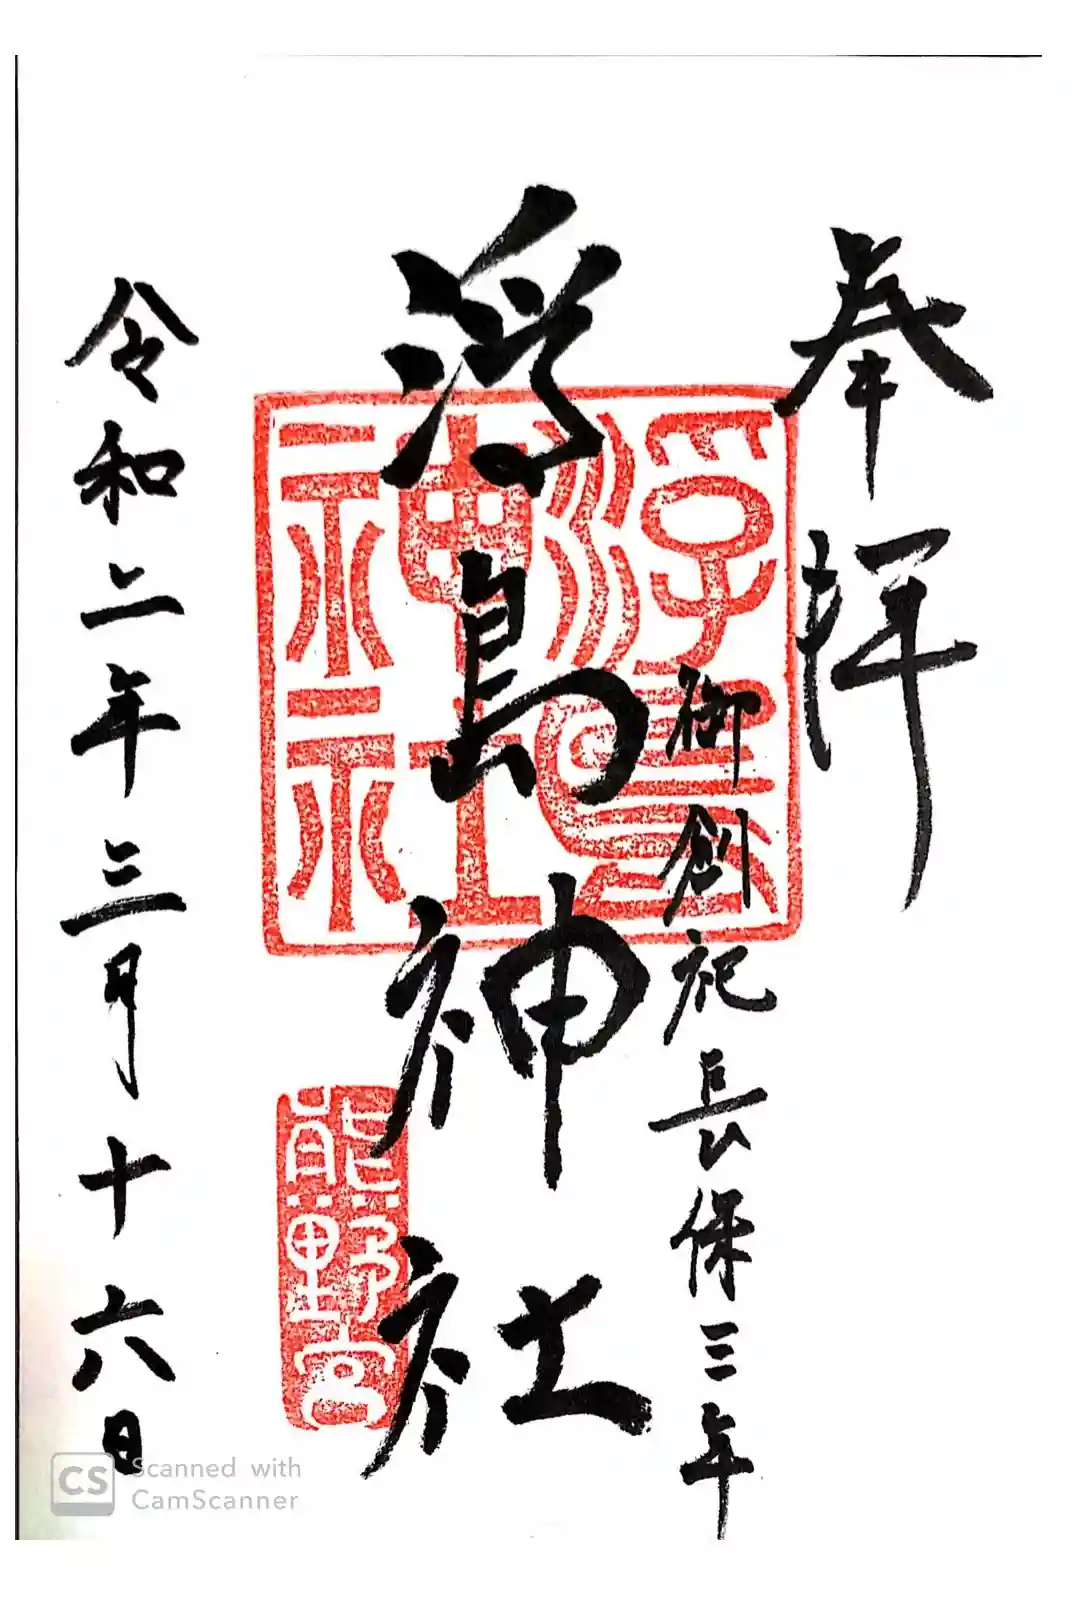 奉拝
御創祀長保三年
浮島神社
令和二年三月十六日
浮島
神社
熊野宮
CS Scanned with
CamScanner